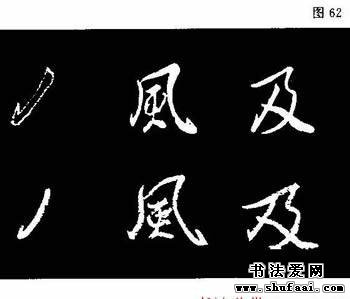 图 62
風 及
風 及
书法爱网
www.shufaai.com